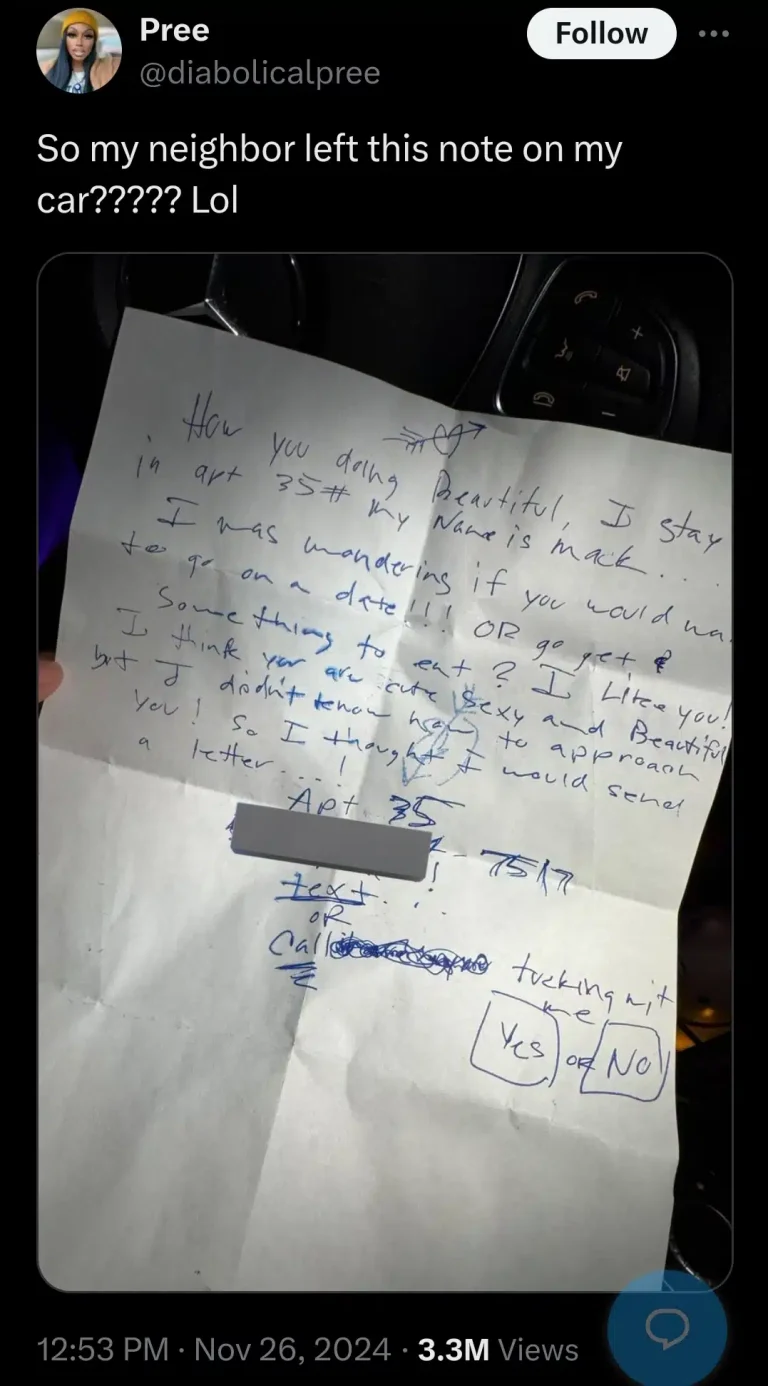 Pree
Follow
@diabolicalpree
So my neighbor left this note on my
car????? Lol
How you doing Beautiful, I stay
in apt 35# my Name is mack...
I was wondering if you would wa
to go on a date!!! OR go get
Something to eat? I Like you!
I think you are cute Sexy and Beautiful
but I didn't know how to approach
You! So I thought I would send
a letter....!
Apt 35
- 7517
text...!
OR
Call
fucking wit
me
Yes OR No
12:53 PM · Nov 26, 2024 · 3.3M Views